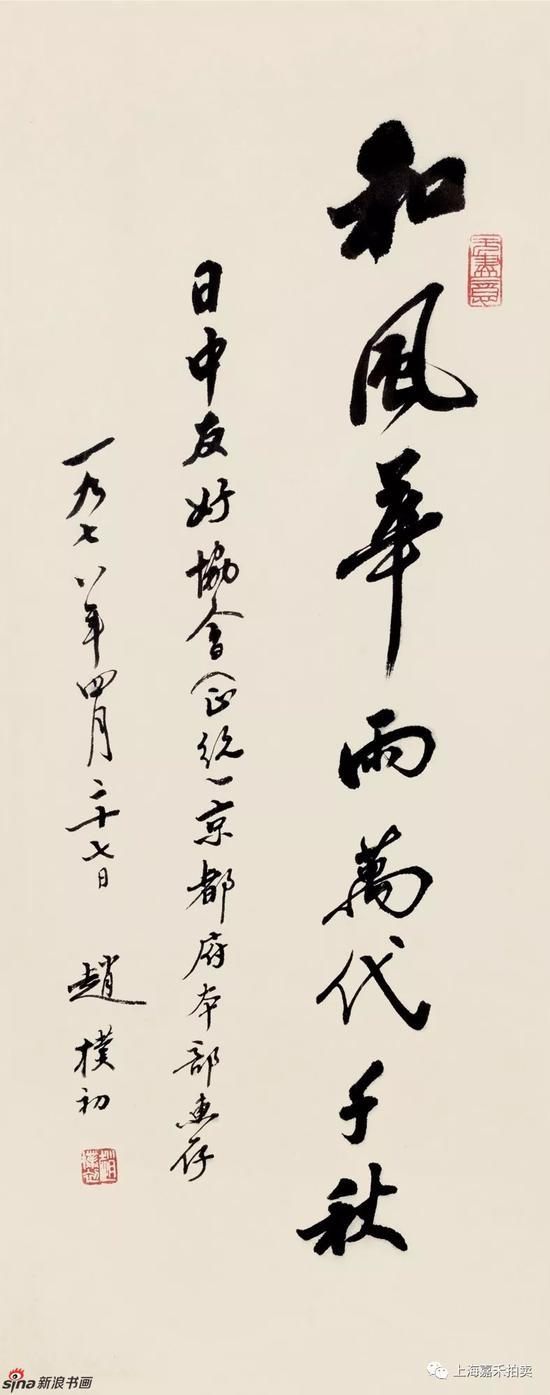 和風華雨萬代千秋
日中友好協會(正統)京都府本部惠存
一九七八年四月二十七日 趙樸初
無盡意
趙樸初
sina新浪书画
上海嘉禾拍卖